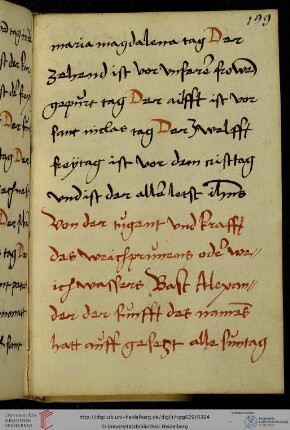 199
maria magdalena tag Der
Zehend ist vor unsere frowe
gepurt tag Der ailfft ist vor
sant niclas tag Der Zwelfft
freytag ist vor dem cristtag
Und ist der aller letst
Von der tugent und krafft
des weichprunens oder we-
ichwassers Bast Alexan-
der der funfft des names
hatt auff gesetzt alle suntag
http://digi.ub.uni-heidelberg.de/diglit/cpg629/0324
© Universitätsbibliothek Heidelberg